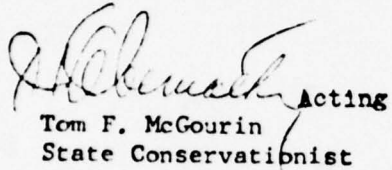 Acting
Tom F. McGourin
State Conservationist